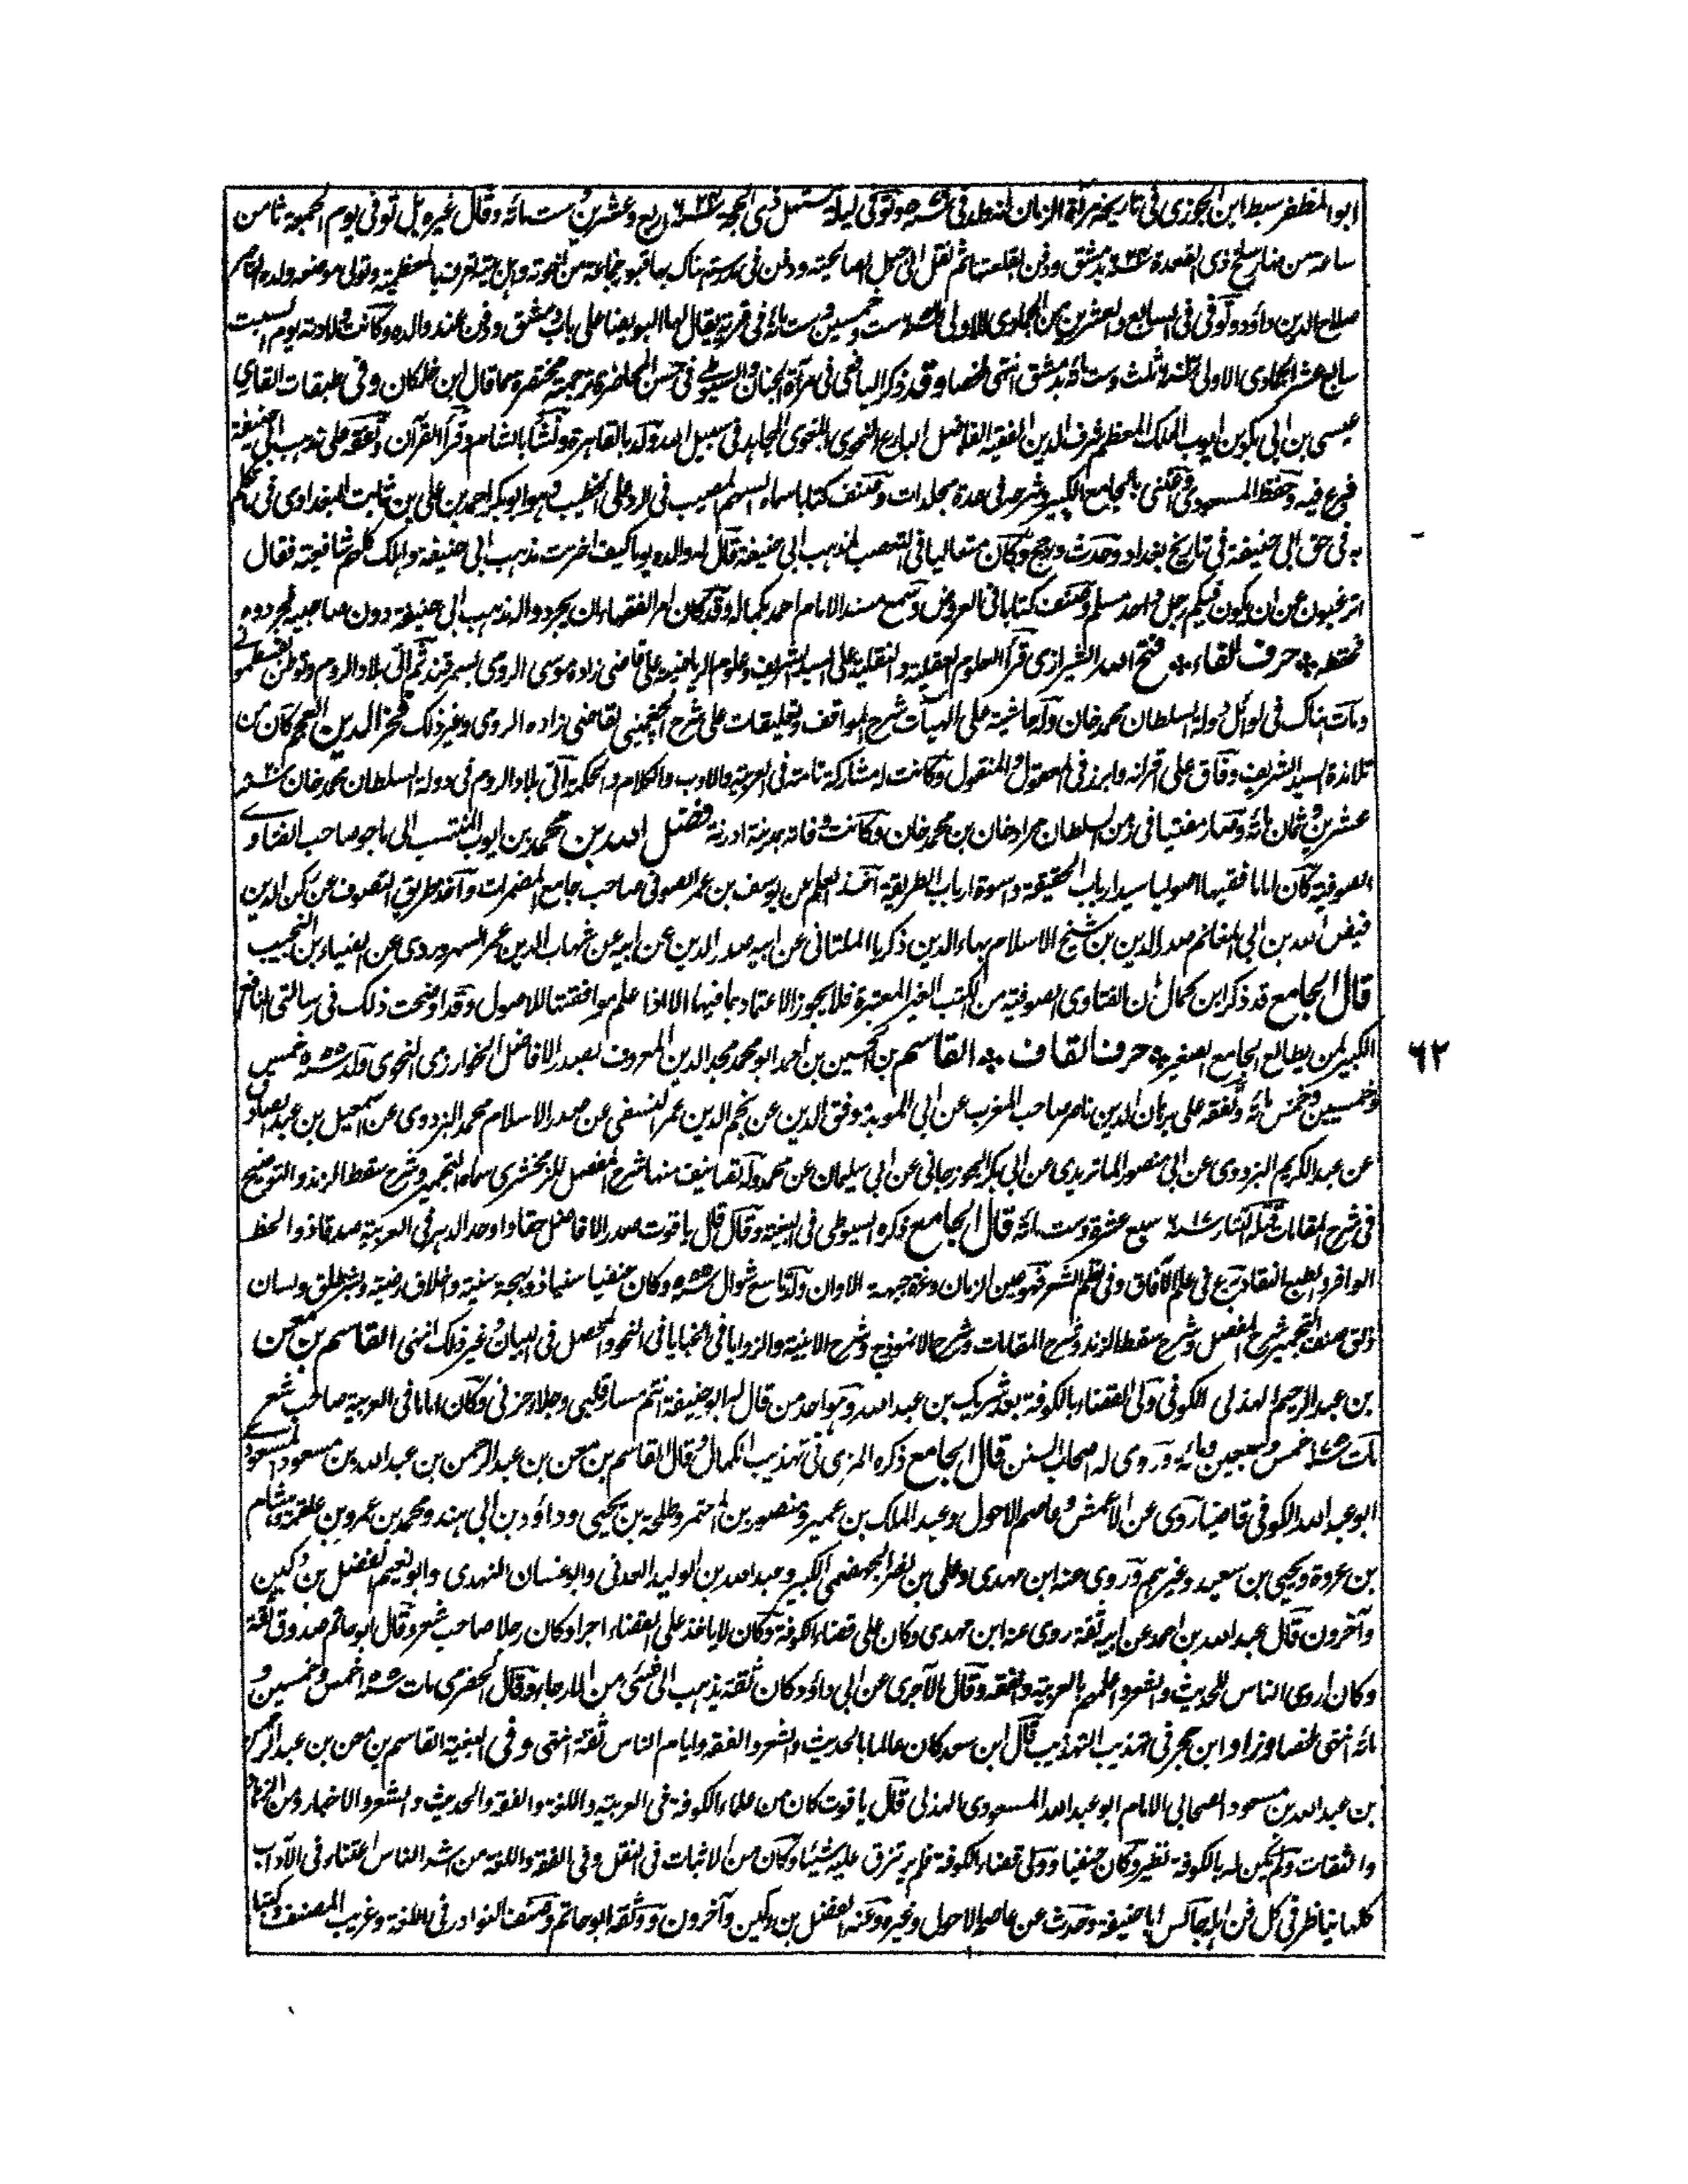 ابو المظفر سبط ابن الجوزى فى تاريخه مرآة الزمان انه ولد فى سنة وتوفى ليلة مستهل ذى الحجة سنة ٦٢٤ اربع وعشرين وست مائة وقال غيره بل توفى يوم الجمعة ثامن
ساعة من نهار سلخ ذى القعدة سنة بدمشق ودفن بقلعتها ثم نقل الى جبل الصالحية ودفن فى مدرسته هناك بها قبور جماعة من اخوته واهل بيته تعرف بالمعظمية وتولى موضعه ولده الناصر
صلاح الدين داؤد وتوفى فى السابع والعشرين من الجمادى الاولى سنة ست وخمسين وست مائة فى قرية يقال لها البويضا على باب دمشق ودفن عند والده وكانت ولادته يوم السبت
سابع عشر الجمادى الاولى سنة ثلث وست مائة بدمشق انتهى ملخصا وقد ذكر اليافعى فى مرآة الجنان والسيوطى فى حسن المحاضرة ترجمة مختصرة مما قال ابن خلكان وفى طبقات القارى
عيسى بن ابى بكر بن ايوب الملك المعظم شرف الدين الفقيه الفاضل البارع النحوى اللغوى المجاهد فى سبيل الله ولد بالقاهرة ونشأ بالشام وقرأ القرآن وتفقه على مذهب ابى حنيفة
فبرع فيه وحفظ المسعودى واعتنى بالجامع الكبير وشرحه فى عدة مجلدات وصنف كتابا سماه السهم المصيب فى الرد على الخطيب وهو ابو بكر احمد بن على بن ثابت البغدادى فى ما تكلم
به فى حق ابى حنيفة فى تاريخ بغداد وحدث وحج وكان متغاليا فى التعصب لمذهب ابى حنيفة قال له والده يوما كيف اخترت مذهب ابى حنيفة واهلك كلهم شافعية فقال
اترغبون عن ان يكون فيكم رجل واحد مسلم وصنف كتابا فى العروض وسمع مسند الامام احمد بكماله وقد كان امر الفقهاء ان يجردوا له مذهب ابى حنيفة دون صاحبيه فجردوه
فحفظه ❊ حرف الفاء ❊ فتح الله الشيرازى قرأ العلوم العقلية والنقلية على السيد الشريف وعلوم الرياضية على قاضى زاده موسى الرومى بسمرقند ثم اتى بلاد الروم وتوطن بقسطمونى
ومات هناك فى اوائل دولة السلطان محمد خان وله حاشية على الهيآت شرح المواقف وتعليقات على شرح الچغمينى لقاضى زاده الرومى وغير ذلك فخر الدين العجم كان من
تلامذة السيد الشريف وفاق على اقرانه وابرز فى المعقول والمنقول وكانت له مشاركة تامة فى العربية والادب والكلام والحكمة اتى بلاد الروم فى دولة السلطان محمد خان سنة
عشرين وثمان مائة وصار مفتيا فى زمن السلطان مراد خان بن محمد خان وكانت وفاته بمدينة ادرنة فضل الله بن محمد بن ايوب المنتسب الى ماجو صاحب الفتاوى
الصوفية كان اماما فقيها اصوليا سيد ارباب الحقيقة واسوة ارباب الطريقة اخذ العلم عن يوسف بن عمر الصوفى صاحب جامع المضمرات واخذ طريق التصوف عن ركن الدين
فيض الله بن ابى المغانم صدر الدين بن شيخ الاسلام بهاء الدين ذكريا الملتانى عن ابيه صدر الدين عن ابيه عن شهاب الدين عمر السهروردى عن الضياء بن النجيب
قال الجامع قد ذكر ابن كمال ان الفتاوى الصوفية من الكتب الغير المعتبرة فلا يجوز الاعتماد بما فيها الا اذا علم موافقتها للاصول وقد اوضحت ذلك فى رسالتى النافع
الكبير لمن يطالع الجامع الصغير ❊ حرف القاف ❊ القاسم بن الحسين بن احمد ابو محمد مجد الدين المعروف بصدر الافاضل الخوارزمى النحوى ولد سنة ٥٥٥ خمس
وخمسين وخمس مائة وتفقه على برهان الدين ناصر صاحب المغرب عن ابى المؤيد موفق الدين عن نجم الدين عمر النسفى عن صدر الاسلام محمد البزدوى عن اسمعيل بن عبد الصادق
عن عبد الكريم البزدوى عن ابى منصور الماتريدى عن ابى بكر الجوزجانى عن ابى سليمان عن محمد وله تصانيف منها شرح المفصل للزمخشرى سماه التجمير وشرح سقط الزند والتوضيح
فى شرح المقامات قتله التتار سنة ٦١٧ سبع عشرة وست مائة قال الجامع ذكره السيوطى فى البغية وقال قال ياقوت صدر الافاضل حقا واوحد الدهر فى العربية صدقا ذو الخط
الوافر والطبع النقاد برع فى علم الآفاق وفى نظم الشعر فهو عين الزمان وغرة جبهة الاوان ولد تاسع شوال سنة ٥٥٥ وكان حنفيا سنيا ذو بهجة سنية واخلاق رضية وبشر طلق ولسان
ذلق صنف التجمير شرح المفصل وشرح سقط الزند وشرح المقامات وشرح الانموذج وشرح الابنية والزوايا فى الخبايا فى النحو والمحصل فى البيان وغير ذلك انتهى القاسم بن معن
بن عبد الرحيم الهذلى الكوفى ولى القضاء بالكوفة بعد شريك بن عبد الله وهو احد من قال لهم ابو حنيفة انتم مسار قلبى وجلاء حزنى وكان اماما فى العربية صاحب شعر
مات سنة ١٧٥ خمس وسبعين ومائة وروى له اصحاب السنن قال الجامع ذكره المزى فى تهذيب الكمال وقال القاسم بن معن بن عبد الرحمن بن عبد الله بن مسعود المسعودى
ابو عبد الله الكوفى قاضيها روى عن الاعمش وعاصم الاحول وعبد الملك بن عمير ومنصور بن المعتمر وطلحة بن يحيى وداؤد بن ابى هند ومحمد بن عمرو بن علقمة وهشام
بن عروة ويحيى بن سعيد وغيرهم وروى عنه ابن مهدى وعلى بن نصر الجهضمى الكبير وعبد الله بن الوليد العدنى وابو غسان النهدى وابو نعيم الفضل بن دكين
وآخرون قال عبد الله بن احمد عن ابيه ثقة روى عنه ابن مهدى وكان على قضاء الكوفة وكان لا ياخذ على القضاء اجرا وكان رجلا صاحب شعر وقال ابو حاتم صدوق ثقة
وكان اروى الناس للحديث والشعر واعلمهم بالعربية والفقه وقال الآجرى عن ابى داؤد كان ثقة يذهب الى شئ من الارجاء وقال الحضرمى مات سنة خمس وخمسين و
مائة انتهى ملخصا وزاد ابن حجر فى تهذيب التهذيب قال ابن سعد كان عالما بالحديث والشعر والفقه وايام الناس ثقة انتهى وفى البغية القاسم بن معن بن عبد الرحمن
بن عبد الله بن مسعود الصحابى الامام ابو عبد الله المسعودى الهذلى قال ياقوت كان من علماء الكوفة فى العربية واللغة والفقه والحديث والشعر والاخبار ومن الزهاد
والثقات ولم يكن له بالكوفة نظير وكان حنفيا وولى قضاء الكوفة فلم يرتزق عليه شيئا وكان من الاثبات فى النقل وفى الفقه واللغة من اشد الناس اعتناء فى الآداب
كلها يناظر فى كل فن اهله جالس ابا حنيفة وحدث عن عاصم الاحول وغيره وعنه الفضل بن دكين وآخرون ووثقه ابو حاتم وصنف النوادر فى اللغة وغريب المصنف وكتبا
٦٢